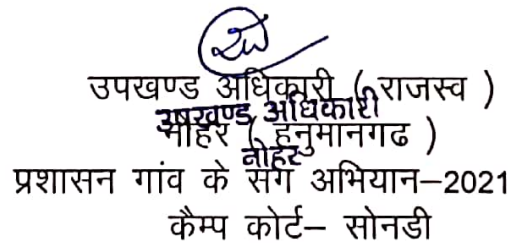 उपखण्ड अधिकारी ( राजस्व )
उपखण्ड अधिकारी
नोहर ( हनुमानगढ )
नोहर
प्रशासन गांव के संग अभियान–2021
कैम्प कोर्ट– सोनडी